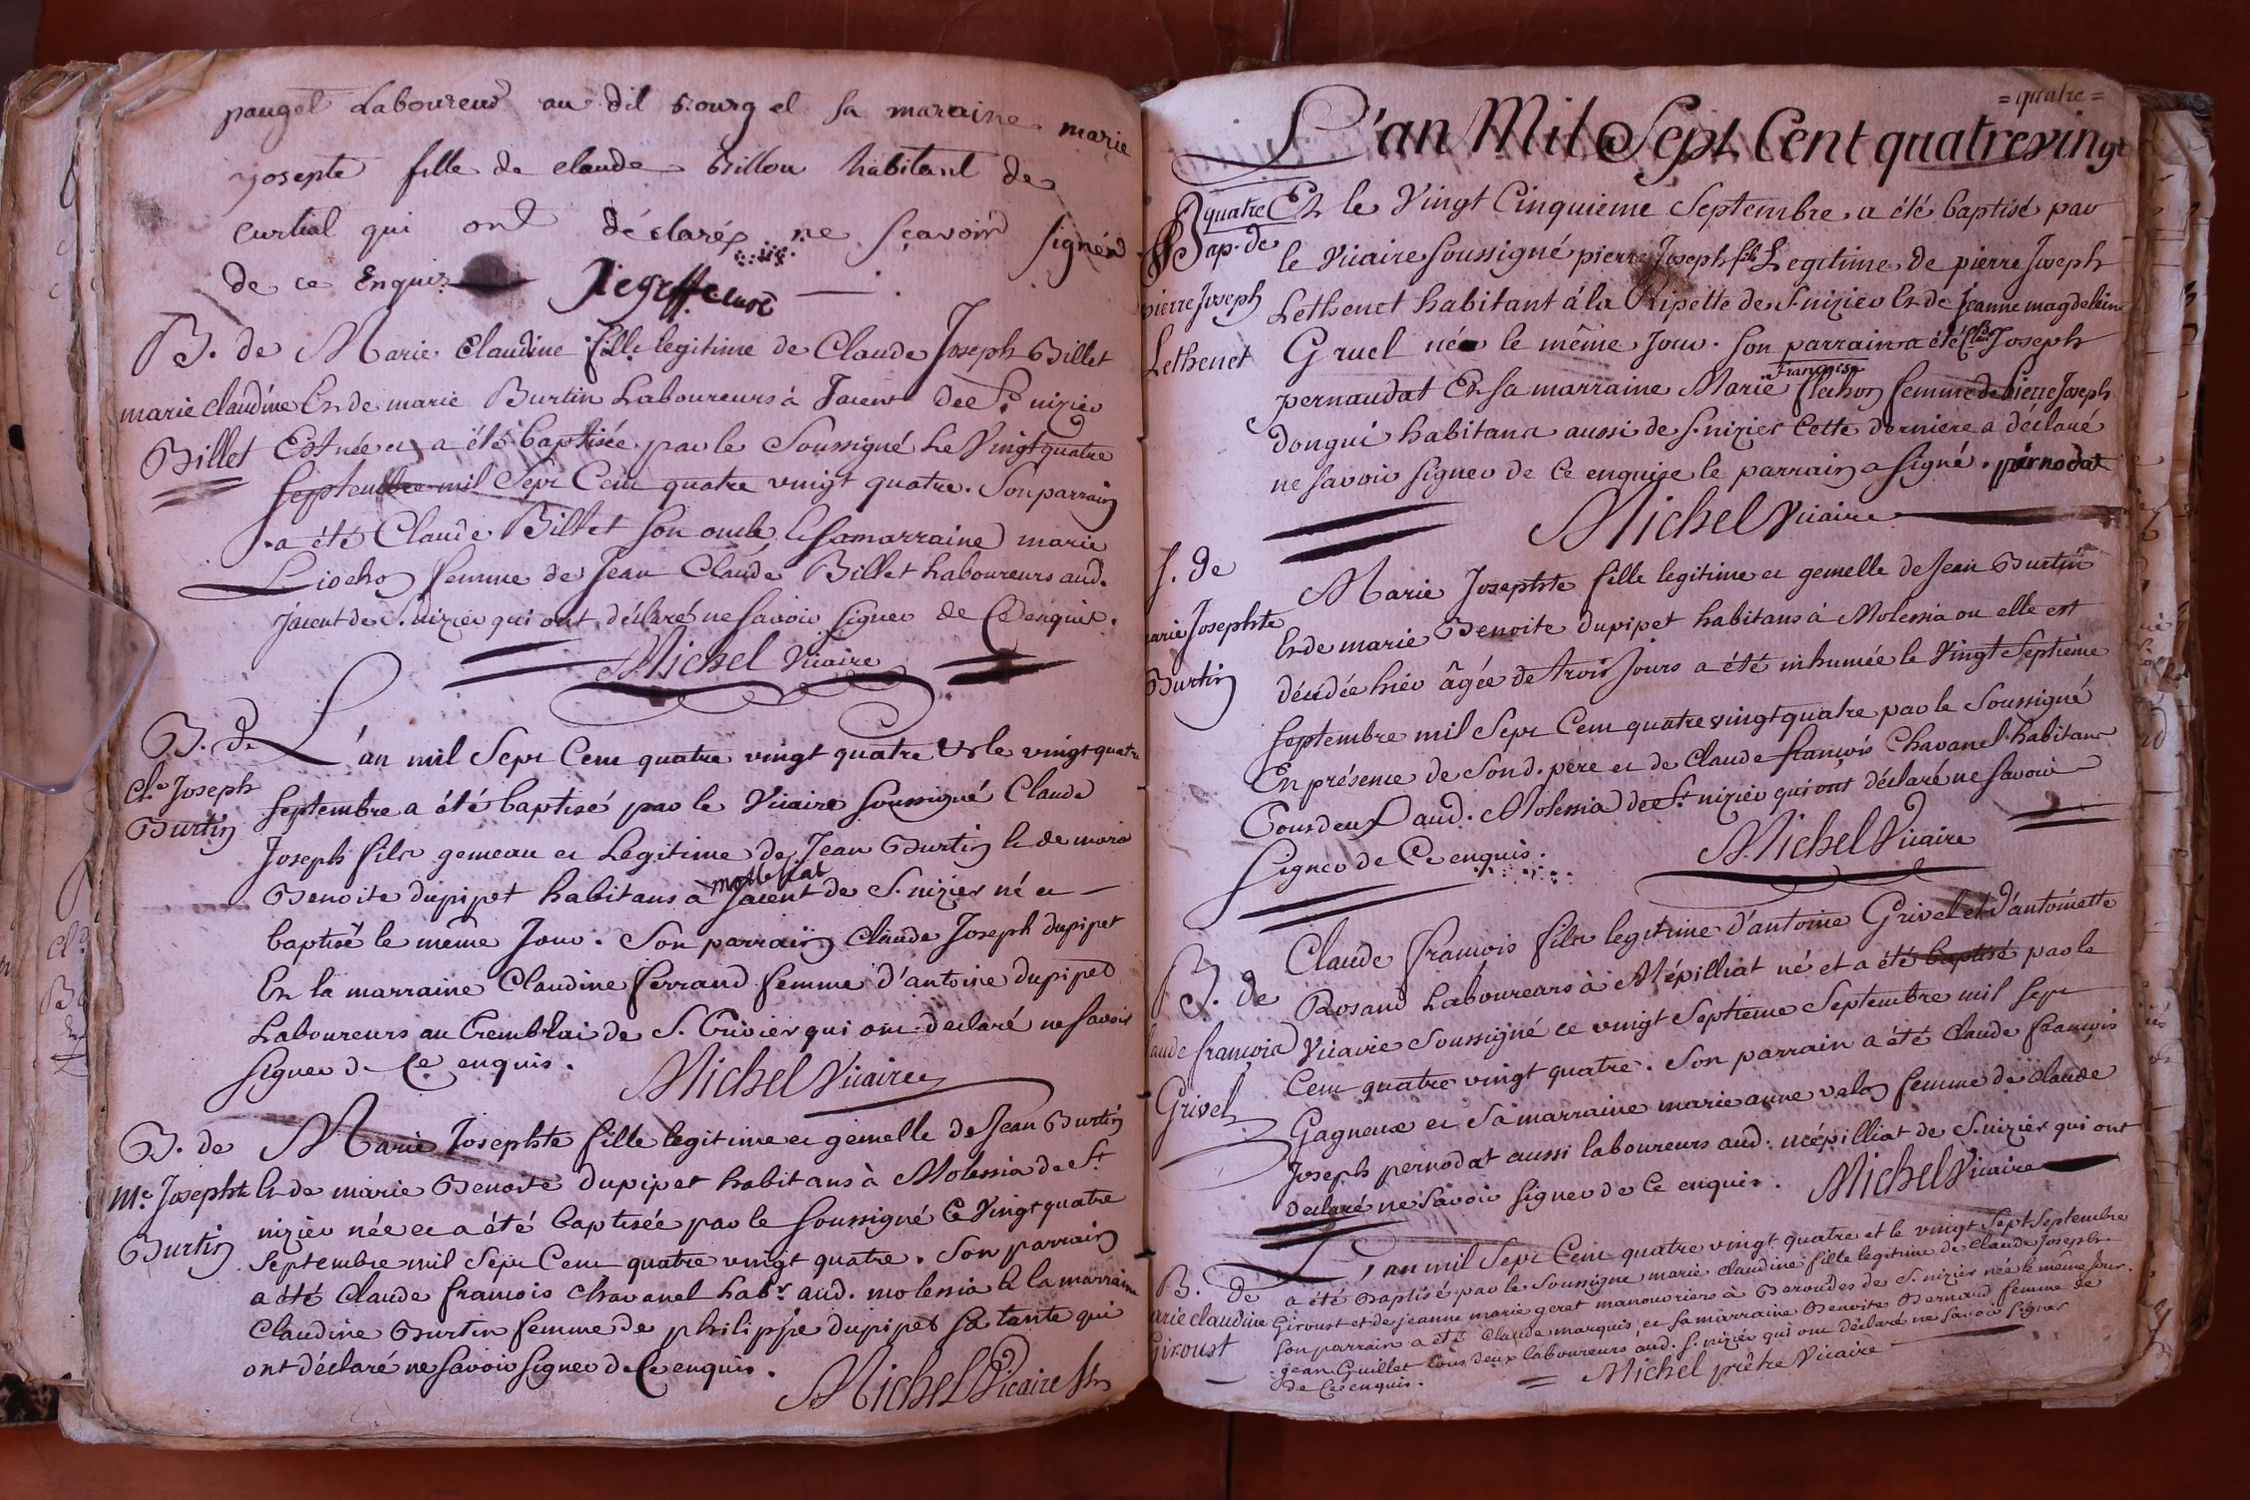 pauget Laboureur au dit bourg et sa maraine marie
josepte fille de claude Billou habitant de
curtial qui ont déclarés ne sçavoir signér
de ce Enquis
B. de Marie Claudine fille legitime de Claude Joseph Billet
marie claudine Et de marie Burtin Laboureurs à Jaient de St. nizier
Billet Est née et a été baptisée par le Soussigné Le Vingt quatre
Septembre mil Sept Cent quatre vingt quatre. Son parrain
a été Claude Billet son oncle et sa marraine marie
Liochon femme de Jean Claude Billet Laboureurs aud.
Jaient de S. nizier qui ont déclaré ne savoir signer de Ce enquis.
Michel Vicaire
B. de L'an mil Sept Cent quatre vingt quatre Et le vingt quatre
Cl. Joseph Septembre a été baptisé par le Vicaire Soussigné Claude
Burtin Joseph fils gemeau et Legitime de Jean Burtin et de marie
Benoite dupipet habitans à Jaient de S. nizier né et
baptisé le même Jour. Son parrain Claude Joseph dupipet
Et la marraine Claudine ferrand femme d'antoine dupipet
Laboureurs au Tremblai de S. Trivier qui ont declaré ne savoir
signer de Ce enquis. Michel Vicaire
B. de Marie Josephte fille legitime et gemelle de Jean Burtin
Me. Josephte Et de marie Benoite dupipet habitans à Molessia de St.
nizier née et a été baptisée par le soussigné Ce Vingt quatre
Burtin Septembre mil Sept Cent quatre vingt quatre. Son parrain
a été Claude francois Chavanel habt. aud. molessia et la marraine
Claudine Burtin femme de philippe dupipet sa tante qui
ont déclaré ne savoir signer de Ce enquis.
Michel Vicaire
= quatre =
L'an Mil Sept Cent quatre vingt
quatre Et le Vingt Cinquieme Septembre a été baptisé par
Bap. de le Vicaire Soussigné pierre Joseph fils Legitime de pierre Joseph
pierre Joseph Lethenet habitant à la Ripette de S. nizier Et de Jeanne magdelaine
Lethenet Gruel né le même Jour. Son parrain a été Joseph
francoise
pernaudat Et sa marraine Marie flechon femme de Pierre Joseph
dongui habitans aussi de S. nizier Cette derniere a déclaré
ne savoir signer de Ce enquise le parrain a signé. pirnodat
Michel Vicaire
S. de Marie Josephte fille legitime et gemelle de Jean Burtin
marie Josephte Et de marie Benoite dupipet habitans à Molessia ou elle est
Burtin décédée hier âgée de trois Jours a été inhumée le Vingt Septieme
Septembre mil Sept Cent quatre vingt quatre par le Soussigné
En présence de Sond. père et de Claude francois Chavanel habitans
Tous deux aud. Molessia de St. nizier qui ont déclaré ne savoir
Signer de Ce enquis. Michel Vicaire
Claude francois fils legitime d'antoine Grivel et d'antoinette
B. de Rosand Laboureurs à Mépilliat né et a été baptisé par le
Claude françois Vicaire Soussigné ce vingt Septieme Septembre mil sept
Grivel Cent quatre vingt quatre. Son parrain a été Claude françois
Gagneux et Sa marraine marie anne velon femme de Claude
Joseph pernodat aussi laboureurs aud. mépilliat de S. nizier qui ont
declaré ne Savoir signer de Ce enquis. Michel Vicaire
L'an mil Sept Cent quatre vingt quatre et le vingt Sept Septembre
B. de a été Baptisé par le Soussigné marie claudine fille legitime de Claude Joseph
marie claudine Giroust et de jeanne marie geret manouvriers à Beroudes de S. nizier née le même Jour.
Giroust Son parrain a été Claude marquis, et sa marraine Benoite Bernard femme de
jean Guillet tous deux laboureurs aud. S. nizier qui ont déclaré ne savoir signer
de Ce enquis. = Michel prêtre Vicaire